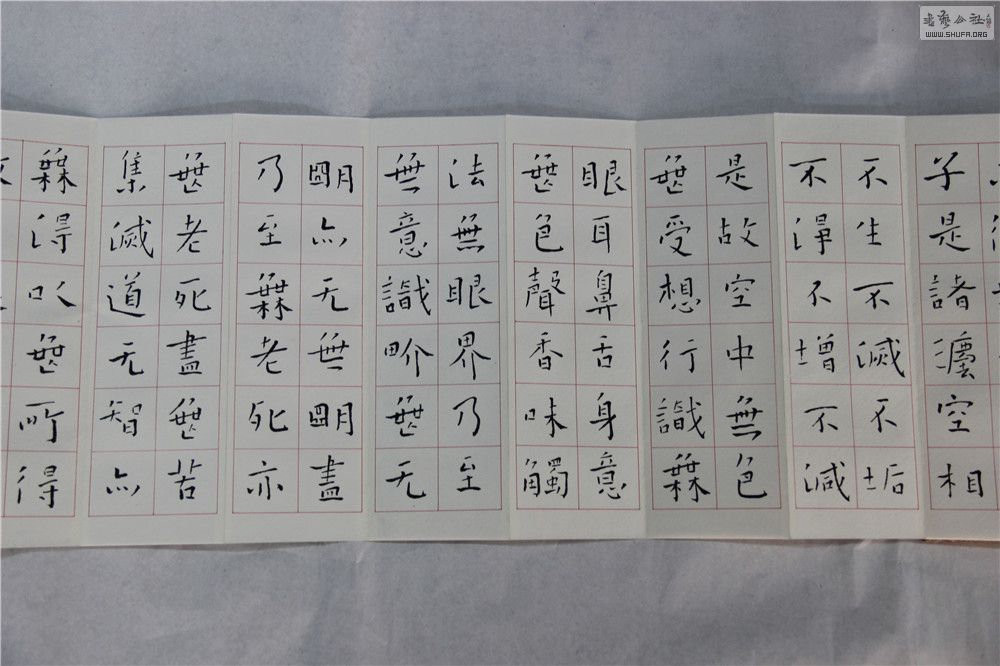 子是諸灋空相
不生不滅不垢
不淨不增不減
是故空中無色
無受想行識無
眼耳鼻舌身意
無色聲香味觸
法無眼界乃至
無意識畍無无
朙亦无無朙盡
乃至無老死亦
無老死盡無苦
集滅道无智亦
無得㕥無所得
書藝公社
WWW.SHUFA.ORG